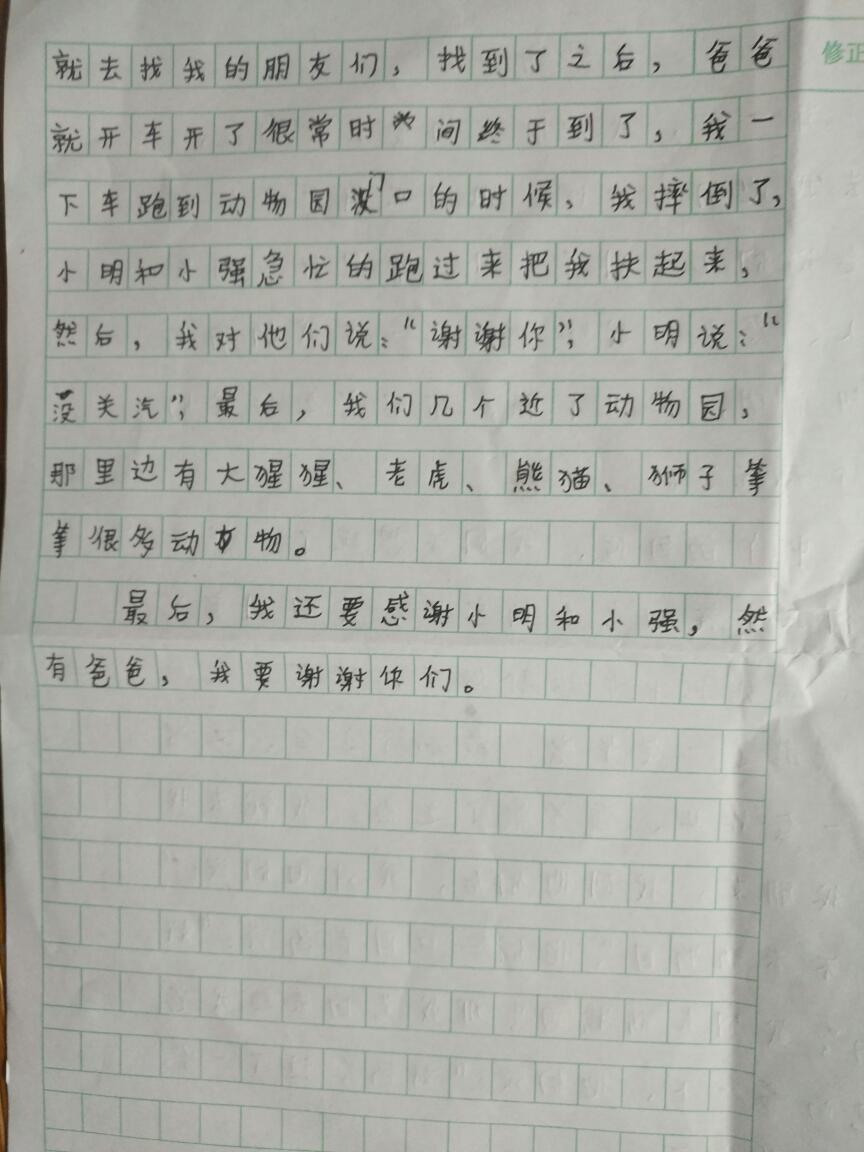 就去找我的朋友们，找到了之后，爸爸
修正
就开车开了很常时间终于到了，我一
下车跑到动物园门口的时候，我摔倒了，
小明和小强急忙的跑过来把我扶起来，
然后，我对他们说：“谢谢你”，小明说：“
没关汽”，最后，我们几个近了动物园，
那里边有大猩猩、老虎、熊猫、狮子等
等很多动物。
最后，我还要感谢小明和小强，然
有爸爸，我要谢谢你们。